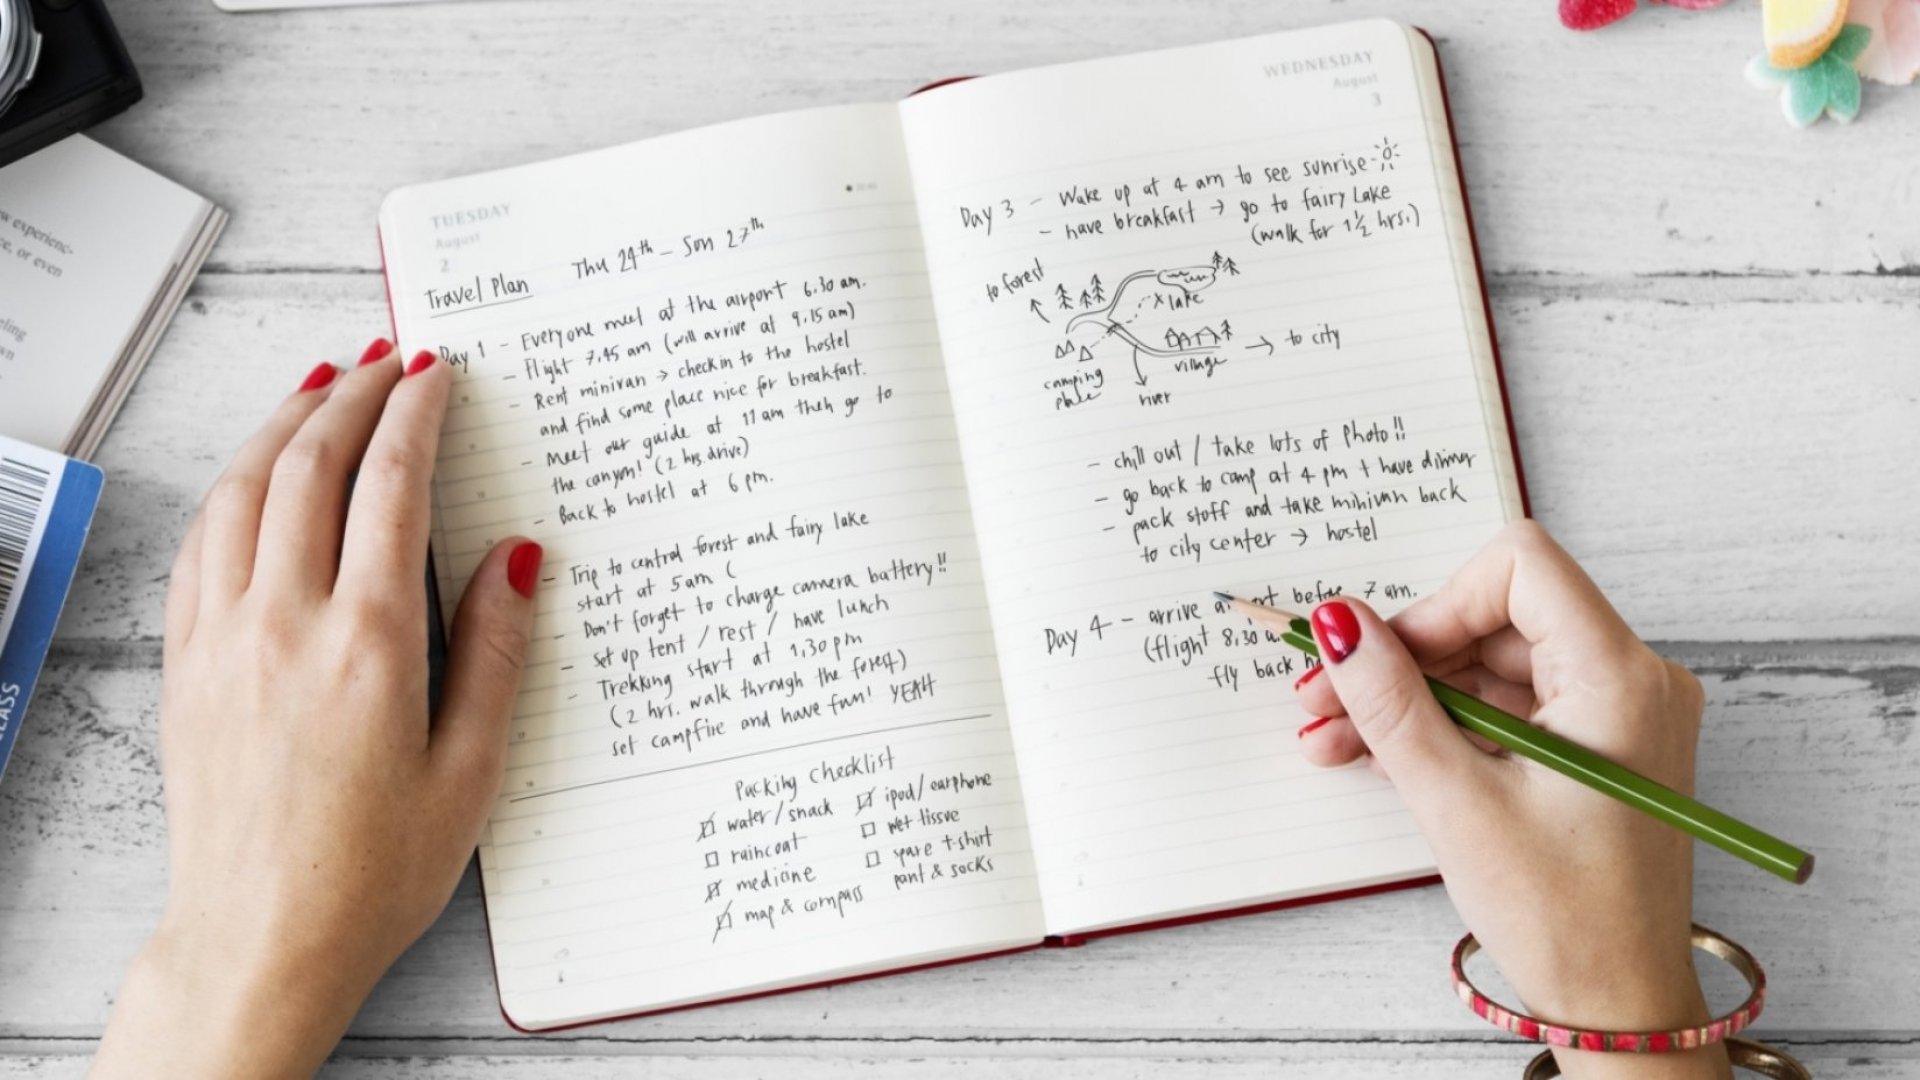 w experienc-
ce, or even
eling
wn
CLASS
TUESDAY
August
2
Travel Plan Thu 24th - Sun 27th
Day 1 - Everyone meet at the airport 6.30 am.
- Flight 7.45 am (will arrive at 9.15 am)
- Rent minivan → check in to the hostel
and find some place nice for breakfast.
- Meet our guide at 11 am then go to
the canyon! (2 hrs. drive)
- Back to hostel at 6 pm.
- Trip to central forest and fairy lake
start at 5am (
- Don't forget to charge camera battery!!
- set up tent / rest / have lunch
- Trekking start at 1.30 pm
(2 hrs. walk through the forest)
set campfire and have fun! YEAH
Packing Checklist
water/snack
raincoat
medicine
map & compass
ipod/earphone
wet tissue
spare t-shirt
pant & socks
WEDNESDAY
August
3
Day 3 - Wake up at 4 am to see sunrise
- have breakfast → go to fairy Lake
(walk for 1 1/2 hrs.)
to forest
x lake
camping
place
village
river
→ to city
- chill out / take lots of photo!!
- go back to camp at 4 pm + have dinner
- pack stuff and take minivan back
to city center → hostel
Day 4 - arrive before 7 am.
(flight 8.30
fly back